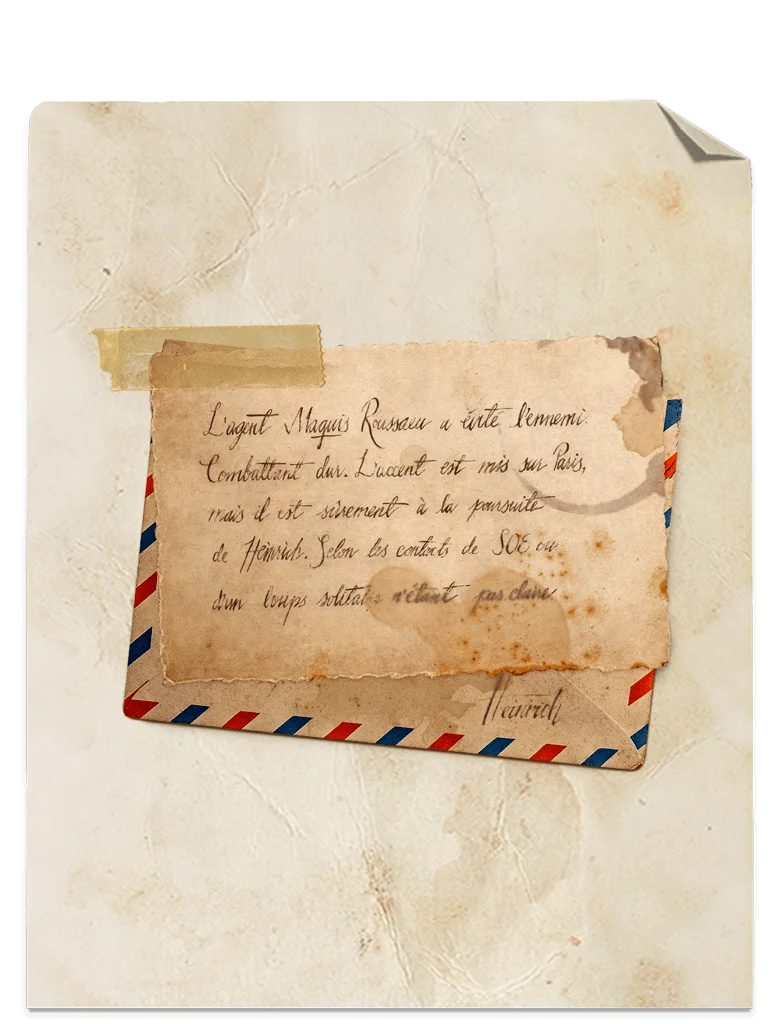 L'agent Maquis Rousseau a évité l'ennemi.
Combattant dur. L'accent est mis sur Paris,
mais il est sûrement à la poursuite
de Heinrich. Selon les contacts de SOE ou
d'un loups solitaire n'étant pas claire.
Heinrich